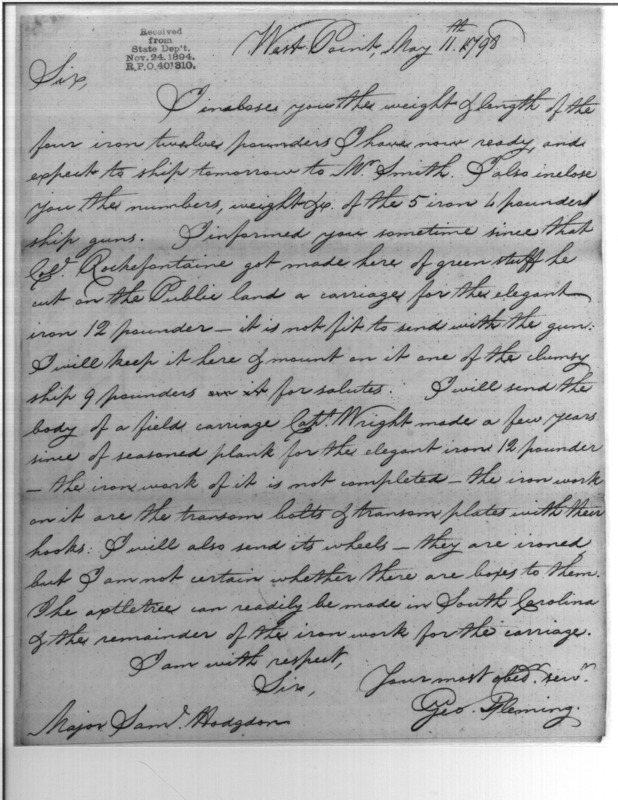 Received
from
State Dep't.
Nov. 24. 1894.
R.P.O. 401810.
West Point, May 11.th 1798
Sir,
I inclose you the weight & length of the
four iron twelve pounders I have now ready, and
expect to ship tomorrow to Mr Smith. I also inclose
you the numbers, weight &c. of the 5 iron 4 pounder
ship guns. I informed you sometime since that
Col. Rochefontaine got made here of green stuff he
cut on the Public land a carriage for the elegant
iron 12 pounder — it is not fit to send with the gun:
I will keep it here & mount on it one of the clumsy
ship 9 pounders on it for salutes. I will send the
body of a field carriage Capt. Wright made a few years
since of seasoned plank for the elegant iron 12 pounder
— the iron work of it is not completed — the iron work
on it are the transom bolts & transom plates with their
hooks: I will also send its wheels — they are ironed,
but I am not certain whether there are boxes to them.
The axtletree can readily be made in South Carolina
& the remainder of the iron work for the carriage.
I am with respect,
Sir, Your most obed. serv.
Geo. Fleming.
Major Sam. Hodgdon